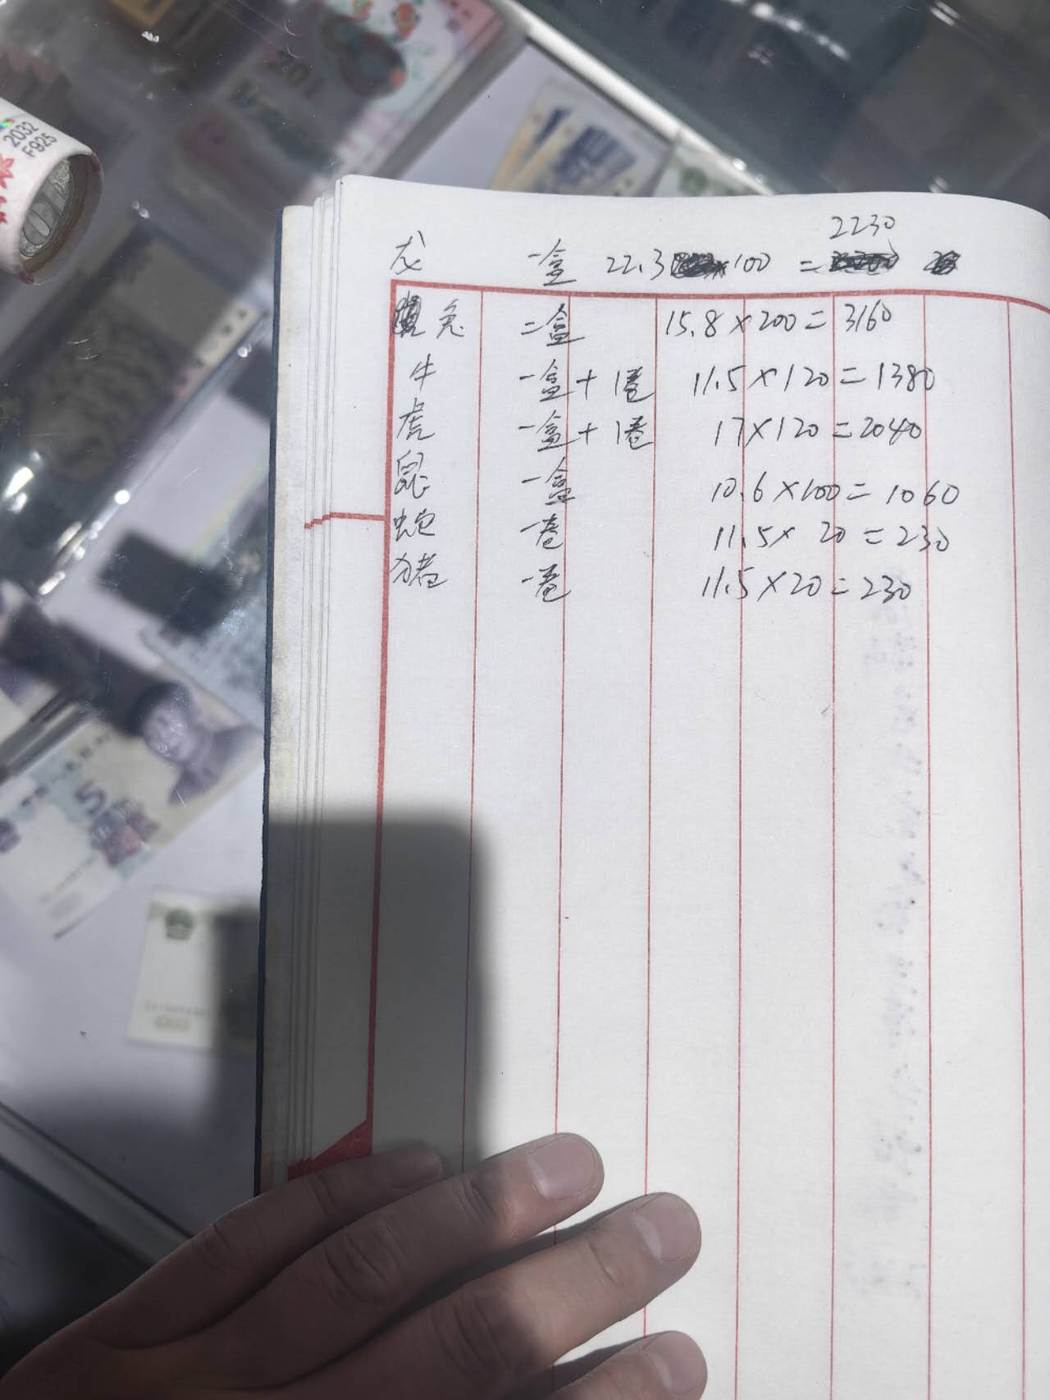 2032
F925
20
5
2230
龙 一盒 22.3 ×100 =
兔 二盒 15.8×200=3160
牛 一盒+1卷 11.5×120=1380
虎 一盒+1卷 17×120=2040
鼠 一盒 10.6×100=1060
蛇 一卷 11.5×20=230
猪 一卷 11.5×20=230